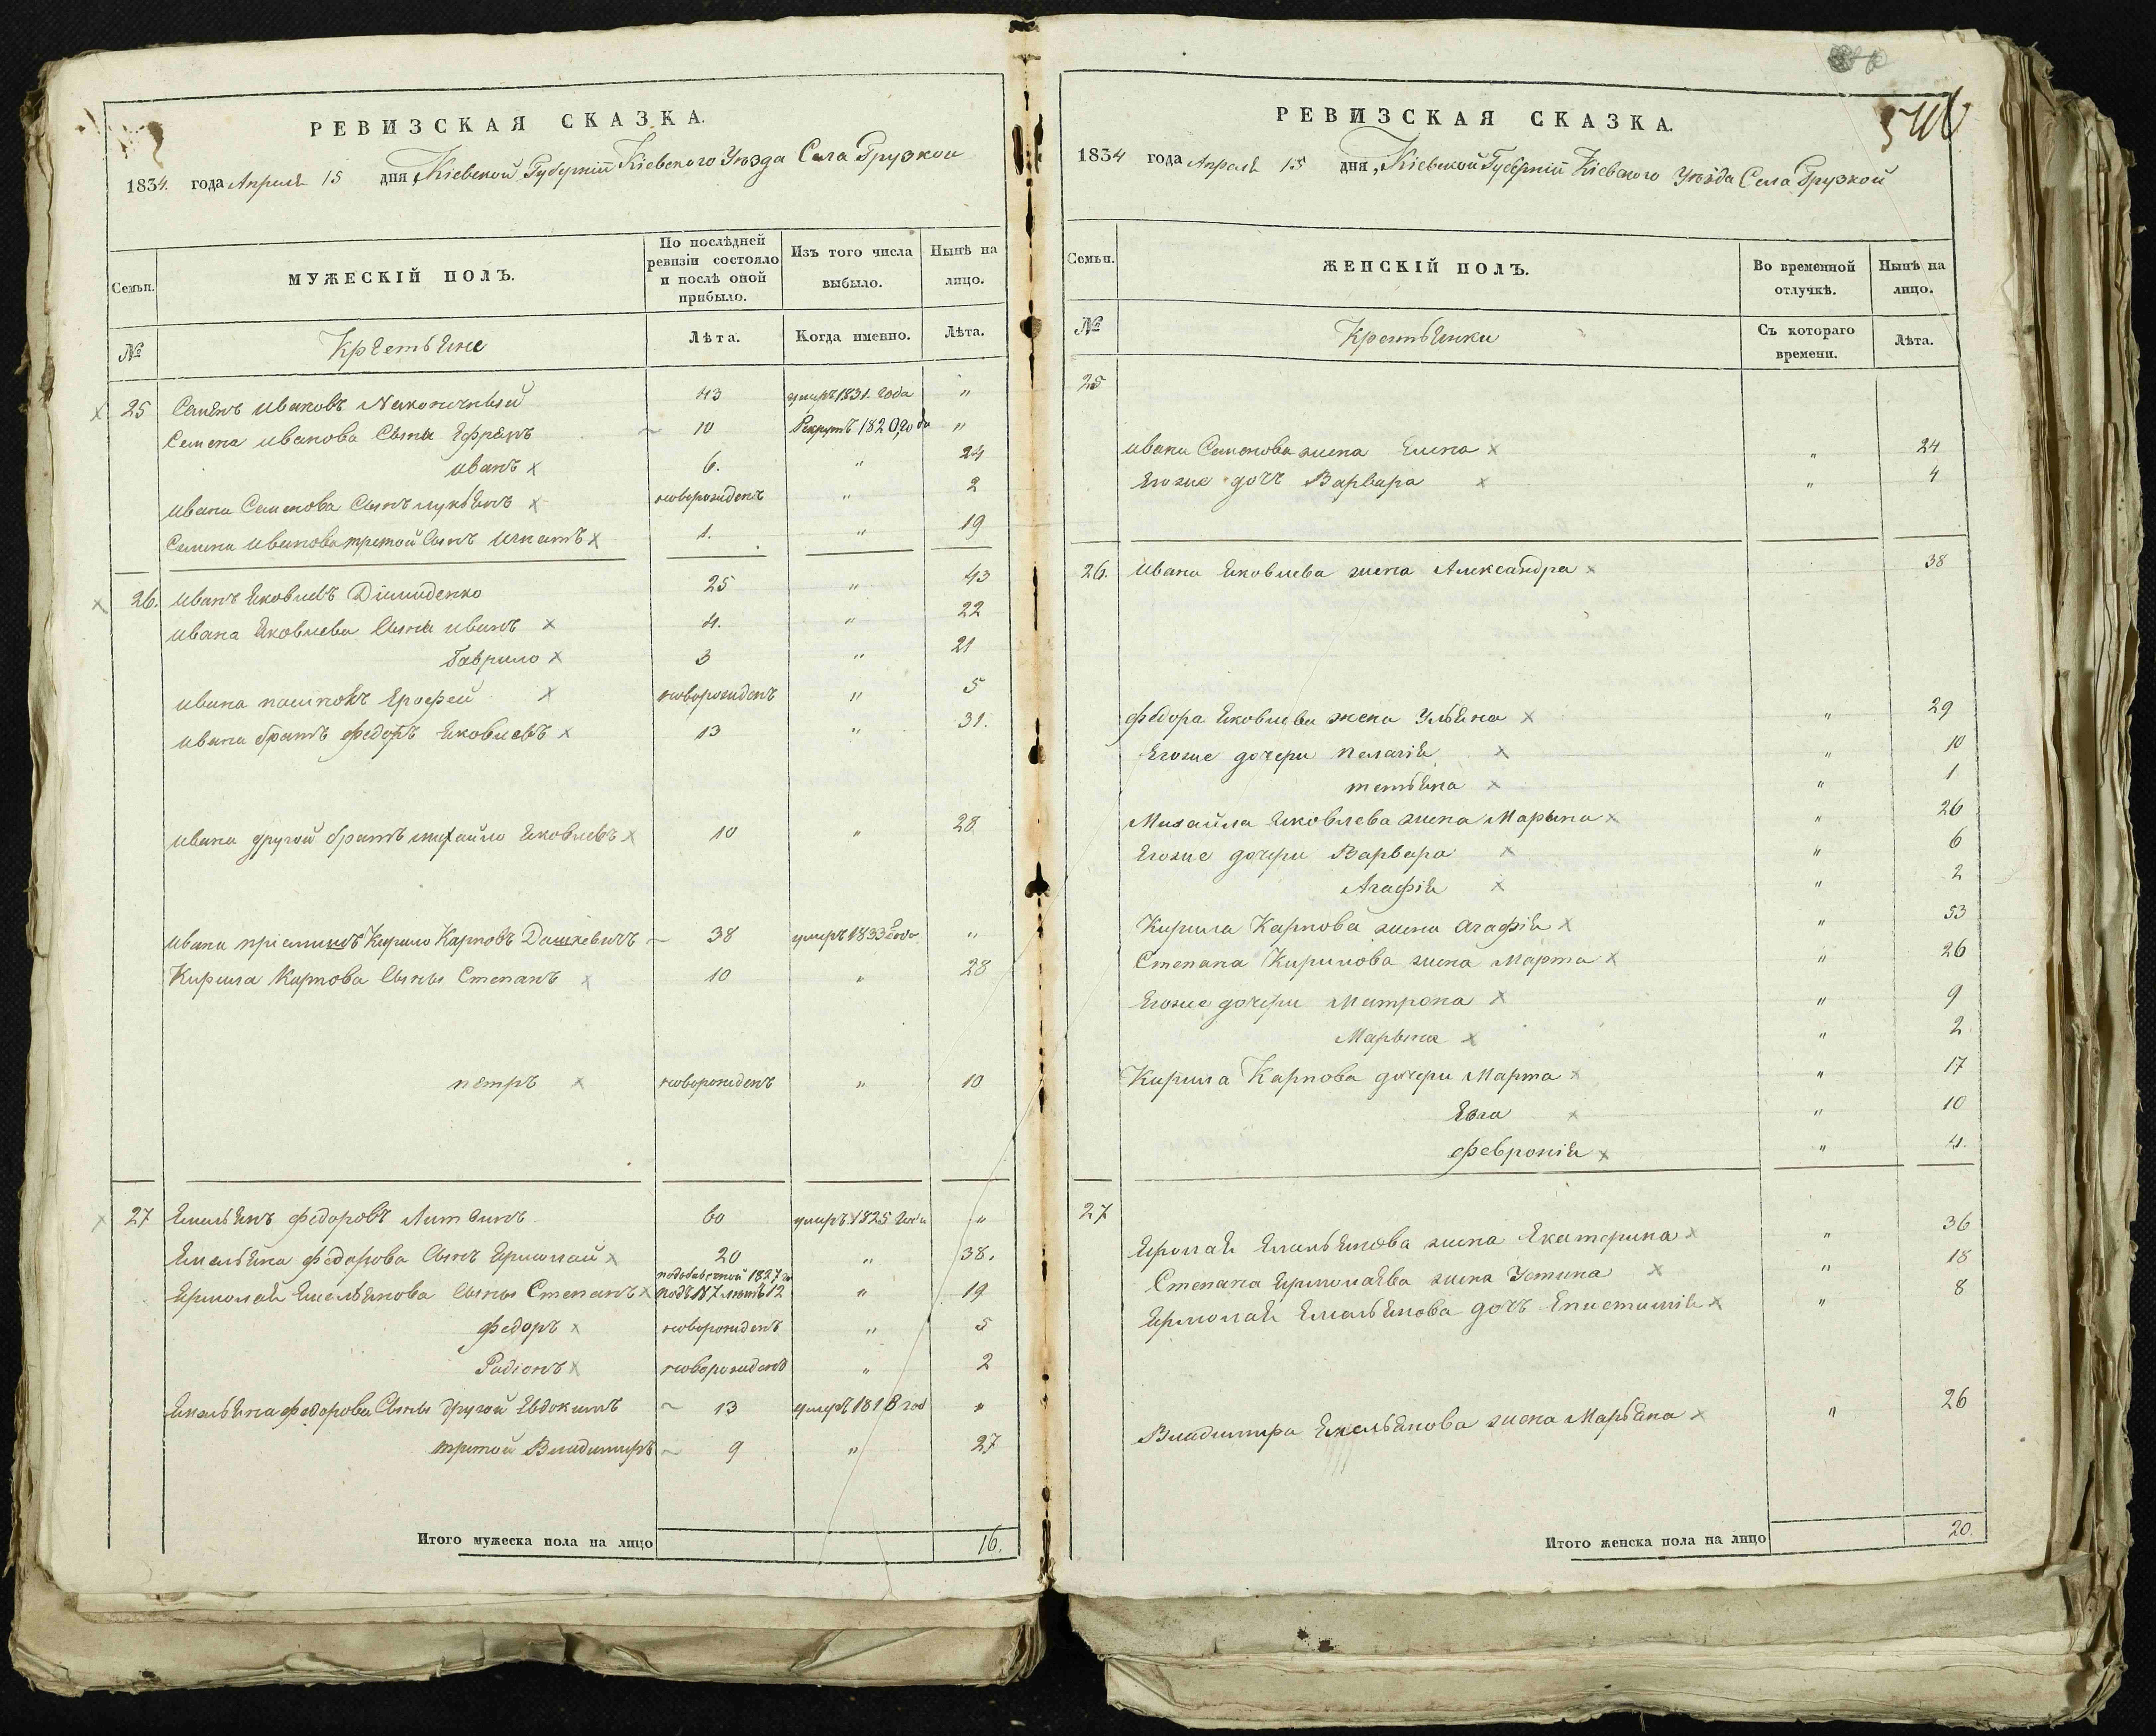 РЕВИЗСКАЯ СКАЗКА.
1834. года Апреля 15 дня, Кіевской Губерніи Кіевского Уѣзда Села Грузкой
Семьи.
МУЖЕСКІЙ ПОЛЪ.
По послѣдней ревизіи состояло и послѣ оной прибыло.
Изъ того числа выбыло.
Нынѣ на лицо.
№
Крестьяне
Лѣта.
Когда именно.
Лѣта.
25 Семенъ Ивановъ 43 умеръ 1831. года "
Семена Иванова Сыны Ефремъ 10 Рекрутъ 1820 года "
иванъ х 6. " 24
ивана Семенова Сынъ лукьянъ х новорожденъ " 2
Семена иванова третой Сынъ игнатъ х 1. " 19
26. иванъ Яковлевъ Дiмиденко 25 " 43
ивана Яковлева Сыны иванъ х 4. " 22
Гаврило х 3 " 21
ивана Ерофей х новорожденъ " 5
ивана братъ федоръ Яковлевъ х 13 " 31.
ивана другой братъ михайло Яковлевъ х 10 " 28
ивана Кирило Карповъ Дашкевичъ 38 умеръ 1833 года "
Кирила Карпова Сыны Степанъ х 10 " 28
петръ х новорожденъ " 10
27 Емельянъ федоровъ 60 умеръ 1825 года "
Емельяна федорова Сынъ Ермолай х 20 " 38.
Ермолая Емельянова Сыны Степанъ х 1827 12 " 19
федоръ х новорожденъ " 5
Радіонъ х новорожденъ " 2
Емельяна федорова Сыны другой Евдокимъ 13 умеръ 1818 год "
третой Владимиръ 9 " 27
Итого мужеска пола на лицо 16.
546
РЕВИЗСКАЯ СКАЗКА.
1834 года Апреля 15 дня, Кіевской Губерніи Кіевского Уѣзда Села Грузкой
Семьи.
ЖЕНСКІЙ ПОЛЪ.
Во временной отлучкѣ.
Нынѣ на лицо.
№
Крестьянки
Съ котораго времени.
Лѣта.
25
ивана Семенова жена Елена х " 24
Егоже дочъ Варвара х " 4
26. ивана Яковлева жена Александра х 38
федора Яковлева жена Ульяна х " 29
Егоже дочери пелагія х " 10
тетьяна х " 1
Михайла Яковлева жена Марына х " 26
Егоже дочери Варвара х " 6
Агафія х " 2
Кирила Карпова жена агафія х " 53
Степана Кирилова жена Марта х " 26
Егоже дочери Матрона х " 9
Марына х " 2
Кирила Карпова дочери Марта х " 17
Евга х " 10
февронія х " 4.
27
Ермолая Емельянова жена Екатерина х " 36
Степана Ермолаева жена Устина х " 18
Ермолая Емельянова дочъ Епистимія х " 8
Владимира Емельянова жена Марьяна х " 26
Итого женска пола на лицо 20.